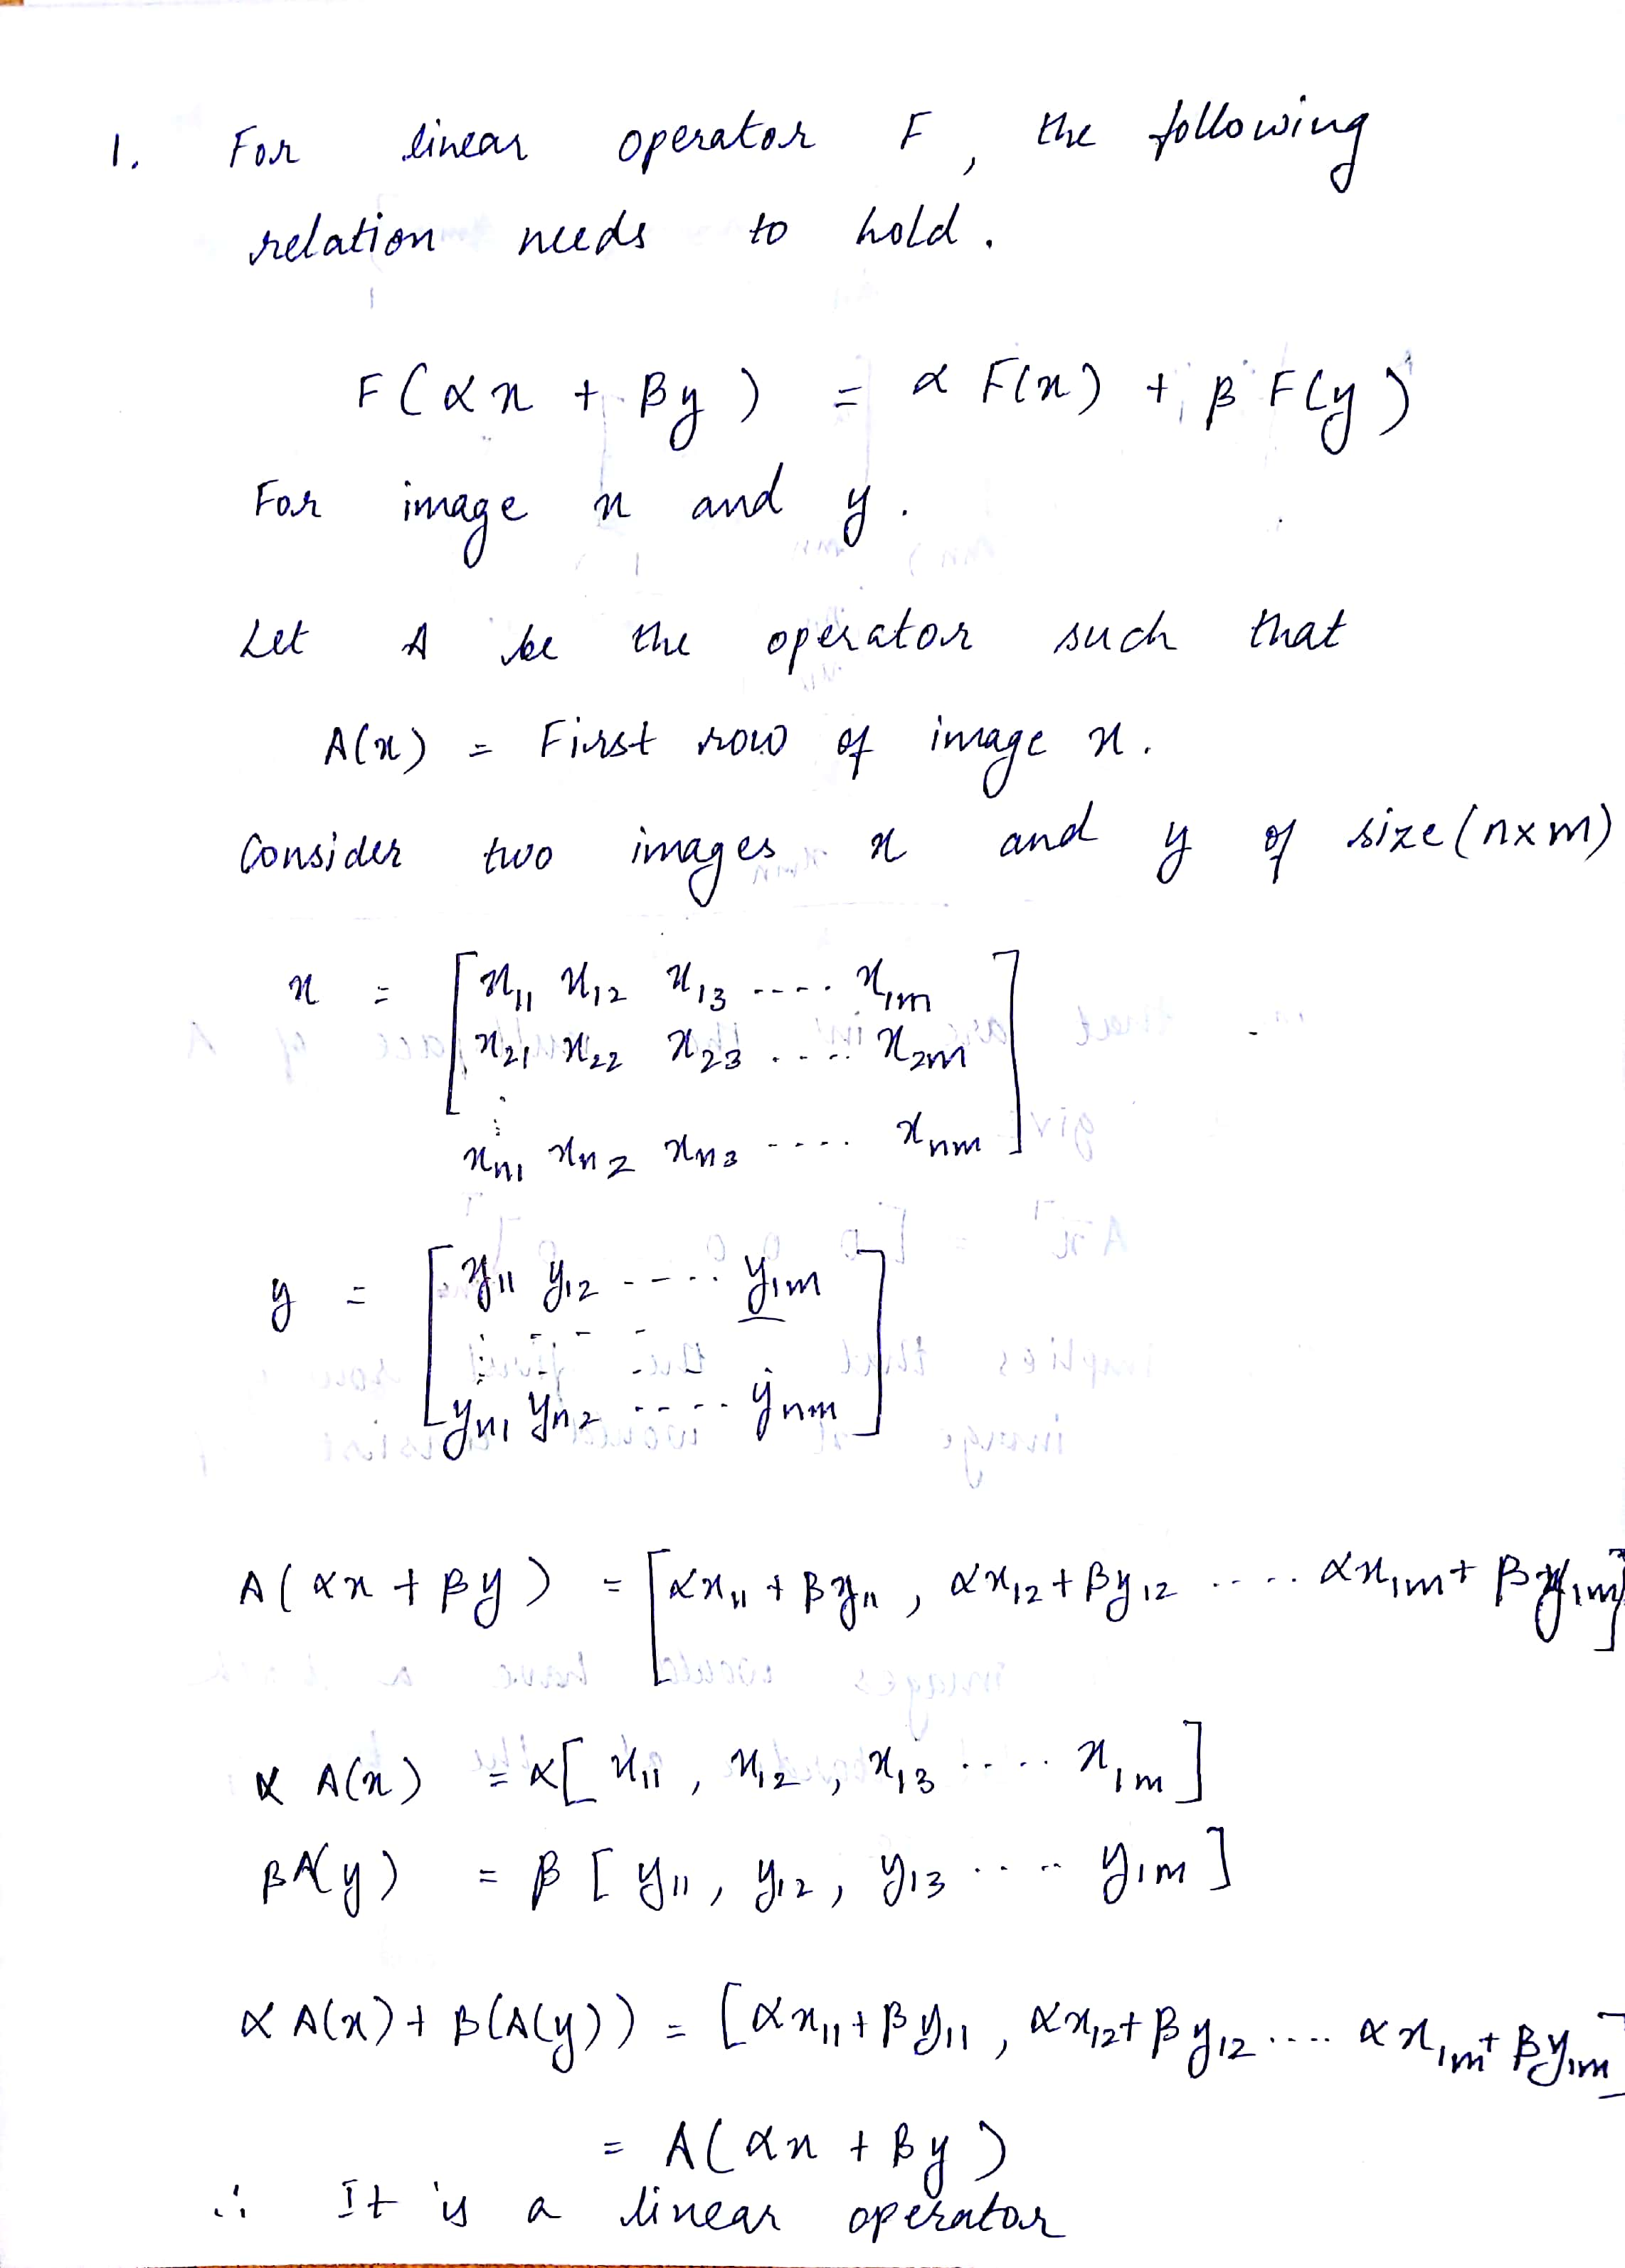 1. For linear operator F, the following
relation needs to hold.
F(αx + βy) = α F(x) + β F(y)
For image x and y.
Let A be the operator such that
A(x) = First row of image x.
Consider two images x and y of size (n×m)
x = [x₁₁ x₁₂ x₁₃ ---- x₁ₘ
x₂₁ x₂₂ x₂₃ ..... x₂ₘ
⋮
xₙ₁ xₙ₂ xₙ₃ ---- xₙₘ]
y = [y₁₁ y₁₂ ---.. y₁ₘ
⋮ - - -
yₙ₁ yₙ₂ ----- yₙₘ]
A(αx + βy) = [αx₁₁ + βy₁₁, αx₁₂ + βy₁₂ .... αx₁ₘ + βy₁ₘ]
α A(x) = α[x₁₁, x₁₂, x₁₃ .... x₁ₘ]
βA(y) = β[y₁₁, y₁₂, y₁₃ .... y₁ₘ]
α A(x) + β(A(y)) = [αx₁₁ + βy₁₁, αx₁₂ + βy₁₂ .... αx₁ₘ + βy₁ₘ]
= A(αx + βy)
∴ It is a linear operator